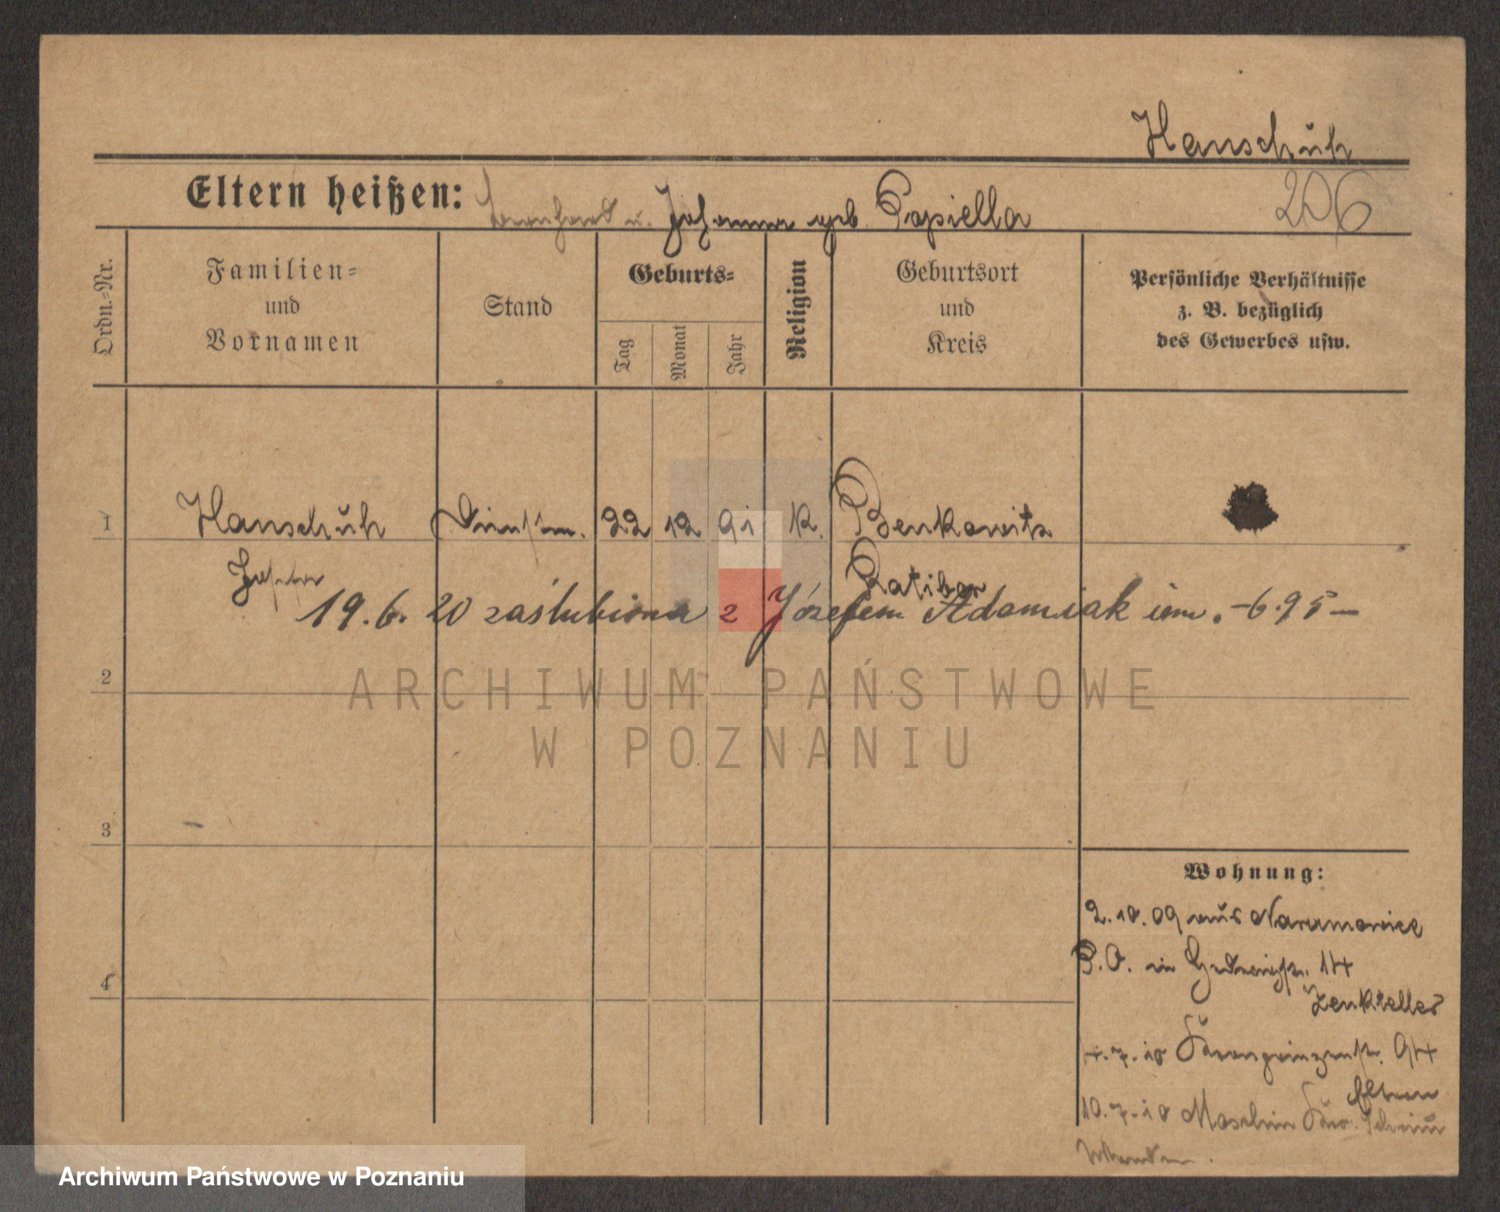 Hanschuh
Eltern heißen: Bernhard u. Johanna geb. Papiella
206
Ordn.-Nr.
Familien=
und
Vornamen
Stand
Geburts=
Tag
Monat
Jahr
Religion
Geburtsort
und
Kreis
Persönliche Verhältnisse
z. B. bezüglich
des Gewerbes usw.
1 Hanschuh 22 12 91 K. Benkowitz
Ratibor
19.6.20 zaślubiona z Józefem Adamiak -6.95-
2
ARCHIWUM PAŃSTWOWE
W POZNANIU
3
Wohnung:
2.10.09 aus Naramowice
P.O. in 14
Zenkteller
4
.7.10 Kronprinzenstr. 94
Eltern
10.7.10
Archiwum Państwowe w Poznaniu